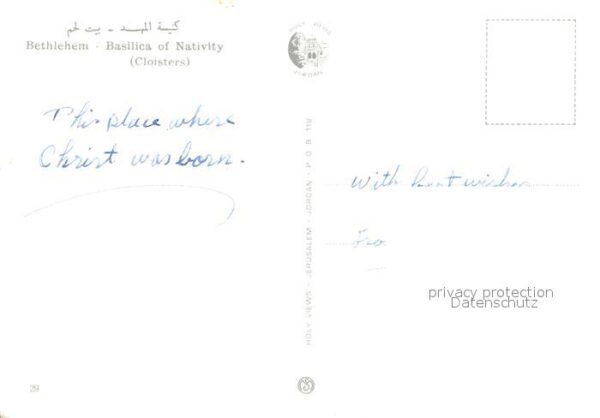 كنيسة المهد - بيت لحم
Bethlehem - Basilica of Nativity
(Cloisters)
This place where
Christ was born.
HOLY VIEWS
JORDAN
HOLY VIEWS - JERUSALEM - JORDAN - P O B 119
With best wishes
Fro
privacy protection
Datenschutz
29